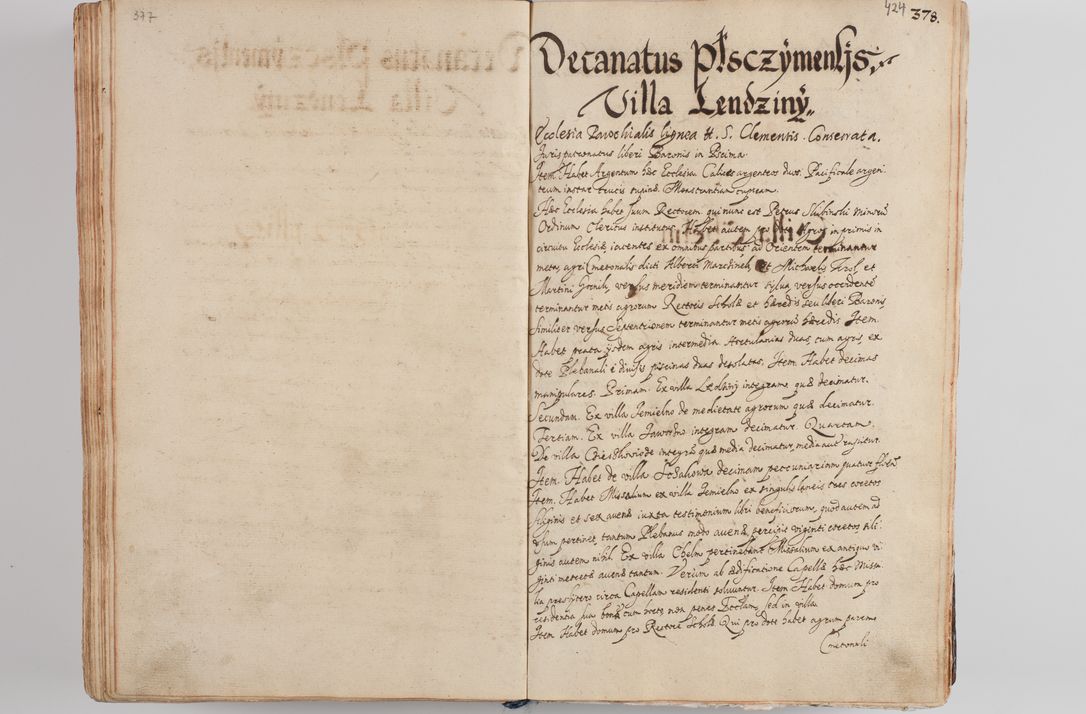 377
424 378.
Decanatus Plsczÿmensis.
Villa Lendzinÿ.
Ecclesia Parochialis lignea tt. S. Clementis. Consecrata.
Juris patronatus liberi Baronis in Pscima.
Item. Habet Argentum hæc Ecclesia Calices argenteos duos. Pacificale argen:
teum instar crucis Monstrantiam cupream.
Hæc Ecclesia habet suum Rectorem qui nunc est Petrus Slubinski minorũ
Ordinum Clericus institutus. Habet autem pro dote Agros in primis in
circuitu Ecclesiæ, iacentes ex omnibus partibus ad Orientem terminantur
metis, agri Cmetonalis dicti Alberti Marcdinek, et Michaelis Krol, et
Martini Gornik, versus meridiem terminantur sylua, versus occidentẽ
terminantur metis agrorum Rectoris Scholæ et hæredis seu liberi Baronis,
similiter versus Septentrionem terminantur metis agrorũ hæredis. Item.
Habet prata ijsdem agris intermedia. Hortulanias duas, cum agris, ex
dote Plebanali è diuisis piscinas duas desolatas. Item. Habet decimas
manipulares. Primam. Ex villa Lędzinÿ integram, quæ decimatur.
Secundam. Ex villa Jemielno de medietate agrorum quæ decimatur.
Tertiam. Ex villa Jaworzno integram decimatur. Quartam.
De villa integrã quæ media decimatur, media aut
Item. Habet de villa decimam pecuniariam quatuor
Item. Habet Missalium ex villa Jemielno ex singulis laneis tres coretos
siliginis et sex auenæ iuxta testimonium libri beneficiorum, quod autem ad
usum pertinet, tantum Plebanus modo auenæ, percipit viginti coretos sili:
ginis autem nihil. Ex villa Chelm pertinebant Missalium ex antiquo vi:
ginti metretæ auenæ tantum. Verum ab ædificatione Capellæ hæc Missa:
lia presbitero circa Capellam residenti soluuntur. Item Habet domum pro
residentia sua bonã cum horto non penes Eccliam, sed in villa.
Item Habet domum pro Rectore Scholæ. Qui pro dote habet agrum paruum
Cmetonali